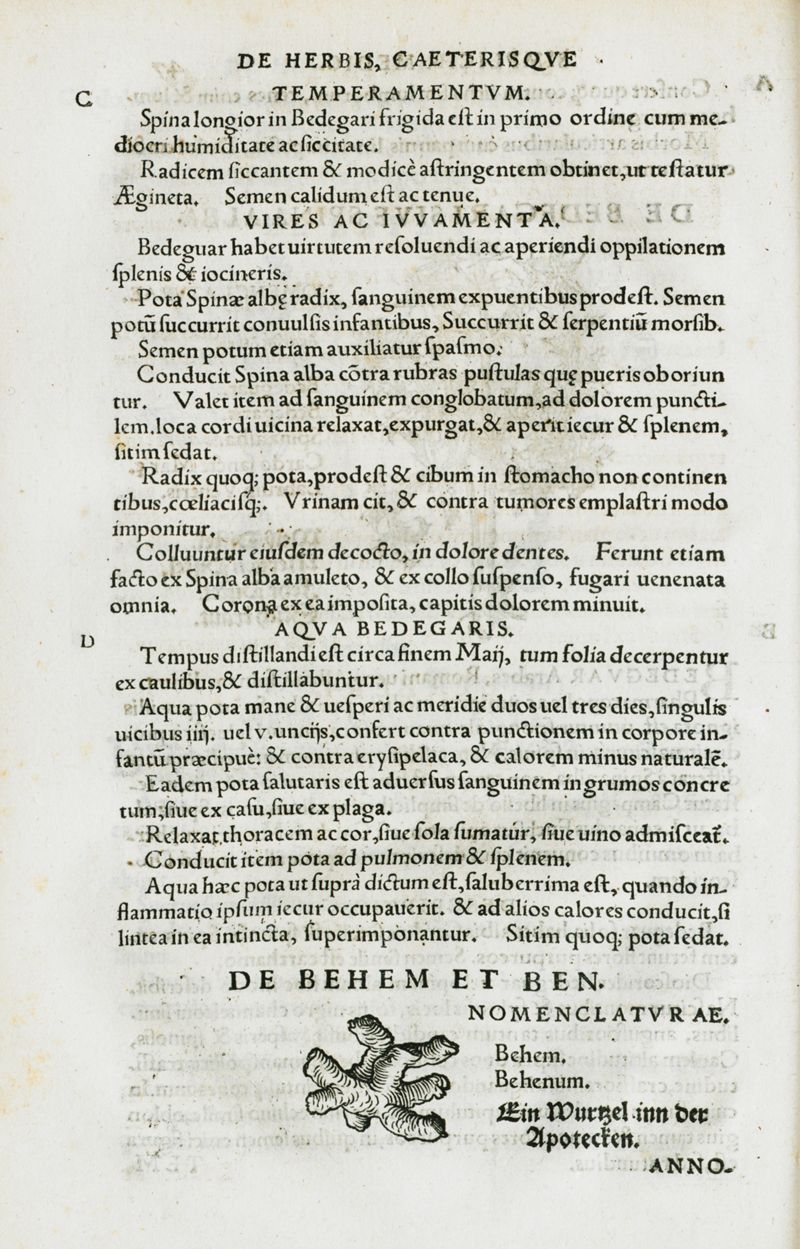 DE HERBIS, CAETERISQVE
C
TEMPERAMENTVM.
Spina longior in Bedegari frigida eſt in primo ordine cum me-
diocri humiditate ac ſiccitate.
Radicem ſiccantem & modicè aſtringentem obtinet, ut teſtatur
Ægineta. Semen calidum eſt ac tenue.
VIRES AC IVVAMENTA.
Bedeguar habet uirtutem reſoluendi ac aperiendi oppilationem
ſplenis & iocineris.
Pota Spinæ albę radix, ſanguinem expuentibus prodeſt. Semen
potū ſuccurrit conuulſis infantibus, Succurrit & ſerpentiū morſib.
Semen potum etiam auxiliatur ſpaſmo.
Conducit Spina alba cōtra rubras puſtulas quę pueris oboriun
tur. Valet item ad ſanguinem conglobatum, ad dolorem puncti-
lem. loca cordi uicina relaxat, expurgat, & aperit iecur & ſplenem,
ſitim ſedat.
Radix quoq; pota, prodeſt & cibum in ſtomacho non continen
tibus, cœliaciſq;. Vrinam cit, & contra tumores emplaſtri modo
imponitur.
Colluuntur eiuſdem decocto, in dolore dentes. Ferunt etiam
facto ex Spina alba amuleto, & ex collo ſuſpenſo, fugari uenenata
omnia. Corona ex ea impoſita, capitis dolorem minuit.
AQVA BEDEGARIS.
D
Tempus diſtillandi eſt circa finem Maij, tum folia decerpentur
ex caulibus, & diſtillabuntur.
Aqua pota mane & ueſperi ac meridie duos uel tres dies, ſingulis
uicibus iiij. uel v. uncijs, confert contra punctionem in corpore in-
fantū præcipuè: & contra eryſipelaca, & calorem minus naturalē.
Eadem pota ſalutaris eſt aduerſus ſanguinem in grumos concre
tum; ſiue ex caſu, ſiue ex plaga.
Relaxat thoracem ac cor, ſiue ſola ſumatur, ſiue uino admiſceat̃.
Conducit item pota ad pulmonem & ſplenem.
Aqua hæc pota ut ſuprà dictum eſt, ſaluberrima eſt, quando in-
flammatio ipſum iecur occupauerit. & ad alios calores conducit, ſi
lintea in ea intincta, ſuperimponantur. Sitim quoq; pota ſedat.
DE BEHEM ET BEN.
NOMENCLATVRAE.
Behem.
Behenum.
Ein Wurtzel inn der
Apotecken.
ANNO-